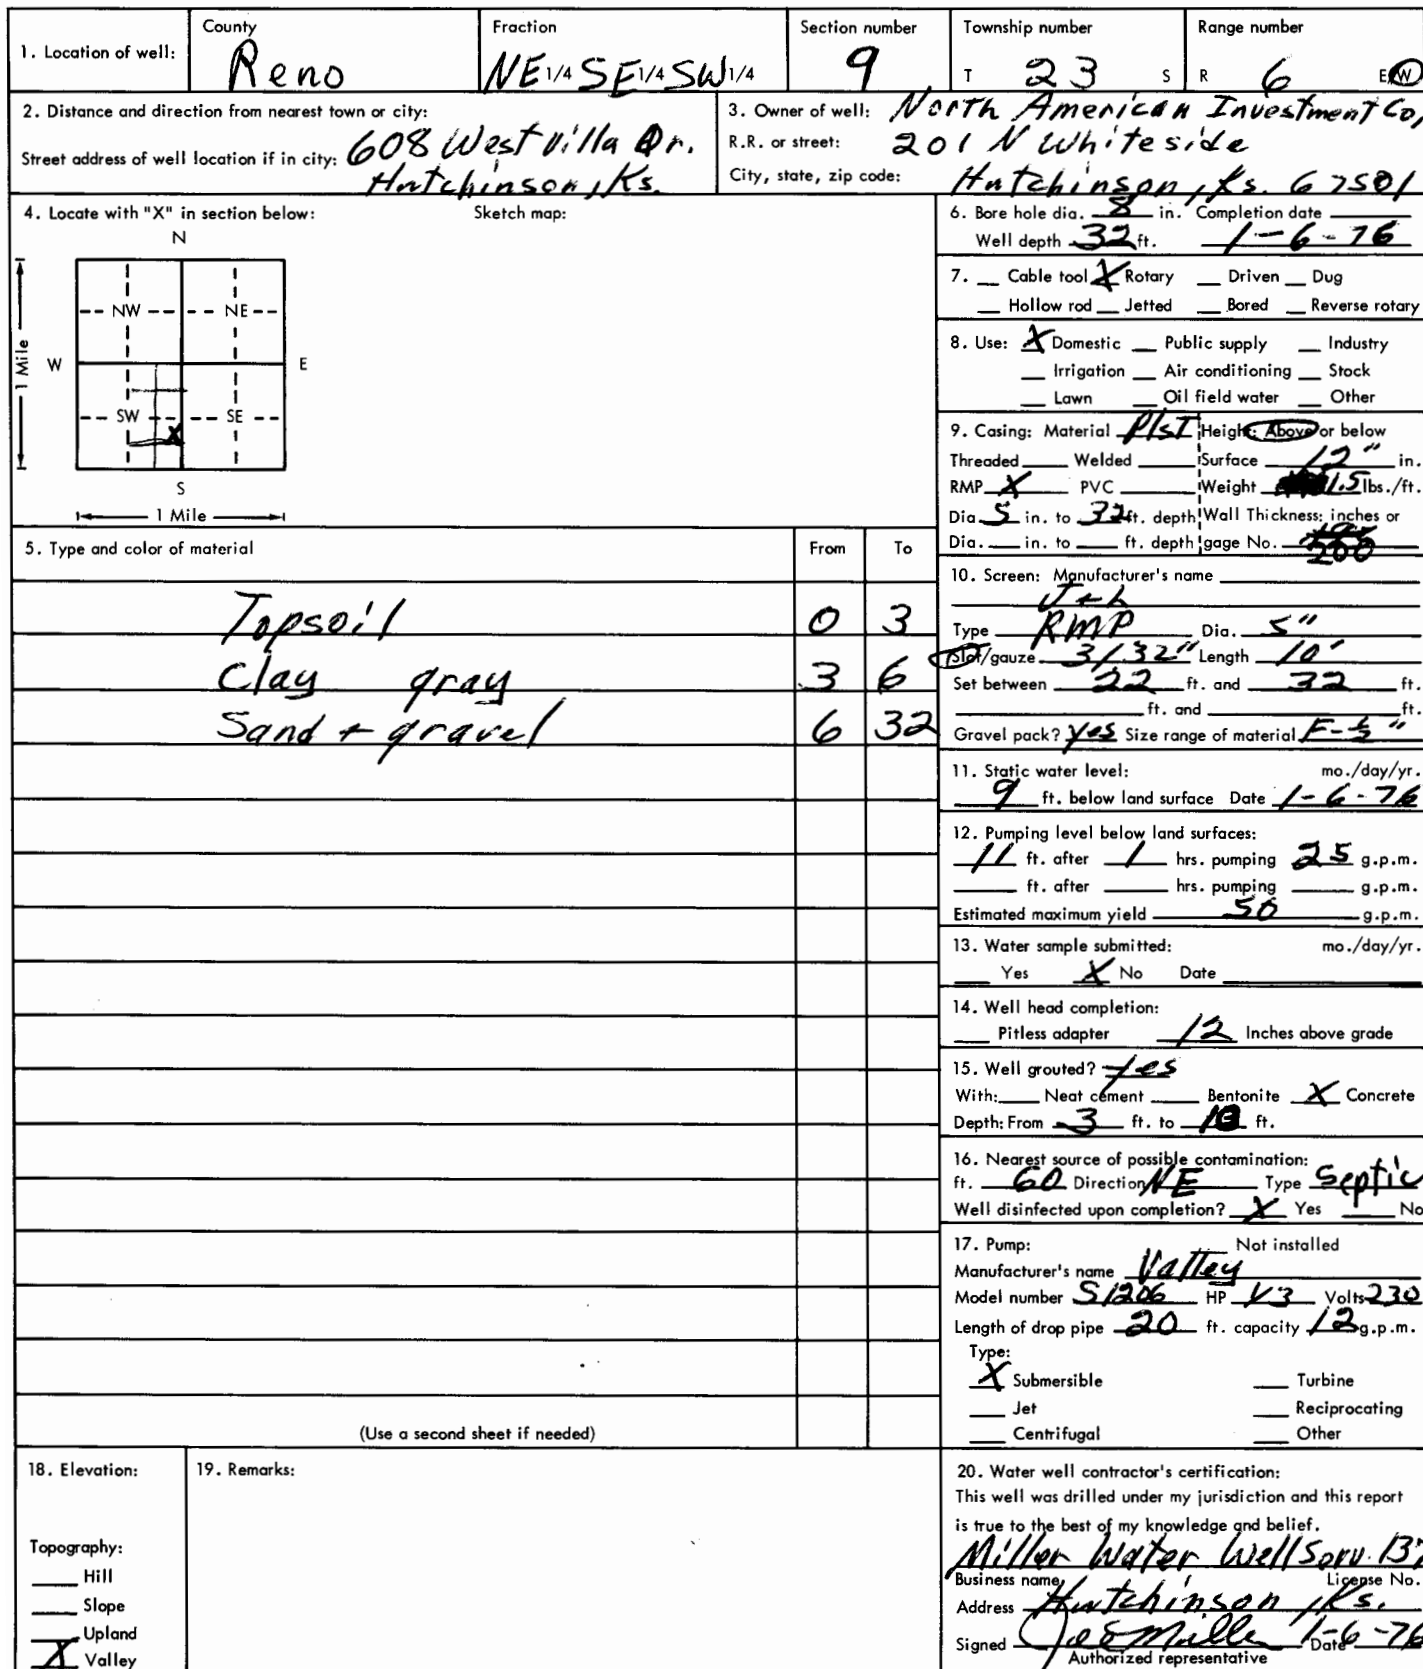 County Fraction Section number Township number Range number
1. Location of well: Reno NE 1/4 SE 1/4 SW 1/4 9 T 23 S R 6 E/W
2. Distance and direction from nearest town or city:
Street address of well location if in city: 608 West Villa Dr.
Hutchinson, Ks.
3. Owner of well: North American Investment Co,
R.R. or street: 201 N Whiteside
City, state, zip code: Hutchinson, Ks. 67501
4. Locate with "X" in section below: Sketch map:
N
NW NE
W E
SW SE
X
S
1 Mile
1 Mile
5. Type and color of material From To
Topsoil 0 3
Clay gray 3 6
Sand + gravel 6 32
(Use a second sheet if needed)
6. Bore hole dia. 8 in. Completion date
Well depth 32 ft. 1-6-76
7. Cable tool X Rotary Driven Dug
Hollow rod Jetted Bored Reverse rotary
8. Use: X Domestic Public supply Industry
Irrigation Air conditioning Stock
Lawn Oil field water Other
9. Casing: Material Plst Height: Above or below
Threaded Welded Surface 12" in.
RMP X PVC Weight 1.5 lbs./ft.
Dia. 5 in. to 32 ft. depth Wall Thickness: inches or
Dia. in. to ft. depth gage No. 200
10. Screen: Manufacturer's name
J+L
Type RMP Dia. 5"
Slot/gauze 3/32" Length 10'
Set between 22 ft. and 32 ft.
ft. and ft.
Gravel pack? yes Size range of material F-½"
11. Static water level: mo./day/yr.
9 ft. below land surface Date 1-6-76
12. Pumping level below land surfaces:
11 ft. after 1 hrs. pumping 25 g.p.m.
ft. after hrs. pumping g.p.m.
Estimated maximum yield 50 g.p.m.
13. Water sample submitted: mo./day/yr.
Yes X No Date
14. Well head completion:
Pitless adapter 12 Inches above grade
15. Well grouted? yes
With: Neat cement Bentonite X Concrete
Depth: From 3 ft. to ft.
16. Nearest source of possible contamination:
ft. 60 Direction NE Type Septic
Well disinfected upon completion? X Yes No
17. Pump: Not installed
Manufacturer's name Valley
Model number S1206 HP 1/3 Volts 230
Length of drop pipe 20 ft. capacity 12 g.p.m.
Type:
X Submersible Turbine
Jet Reciprocating
Centrifugal Other
18. Elevation:
Topography:
Hill
Slope
Upland
X Valley
19. Remarks:
20. Water well contractor's certification:
This well was drilled under my jurisdiction and this report
is true to the best of my knowledge and belief.
Miller Water Well Serv. 137
Business name License No.
Address Hutchinson, Ks.
Signed Joe Miller Date 1-6-76
Authorized representative